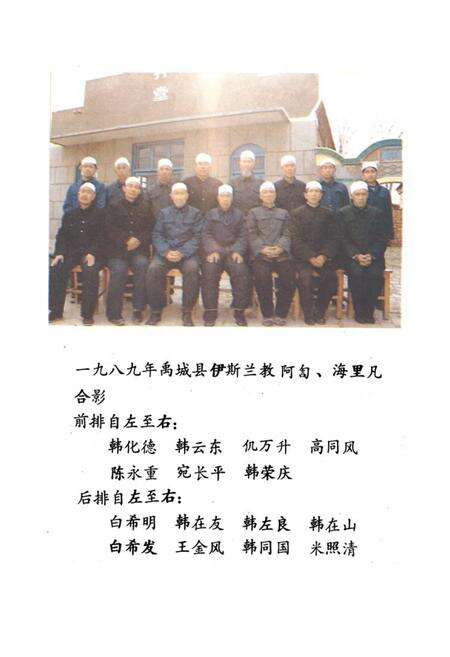 一九八九年禹城县伊斯兰教阿匐、海里凡
合影
前排自左至右：
韩化德 韩云东 仉万升 高同风
陈永重 宛长平 韩荣庆
后排自左至右：
白希明 韩在友 韩左良 韩在山
白希发 王金风 韩同国 米照清